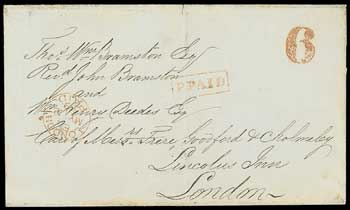 6
Thos. Wm. Bramston Esq
Revd. John Bramston
PPAID
and
Wm. Henry Deedes Esq
Care of Messrs Frere, Goodford & Cholmeley
Lincolns Inn
London